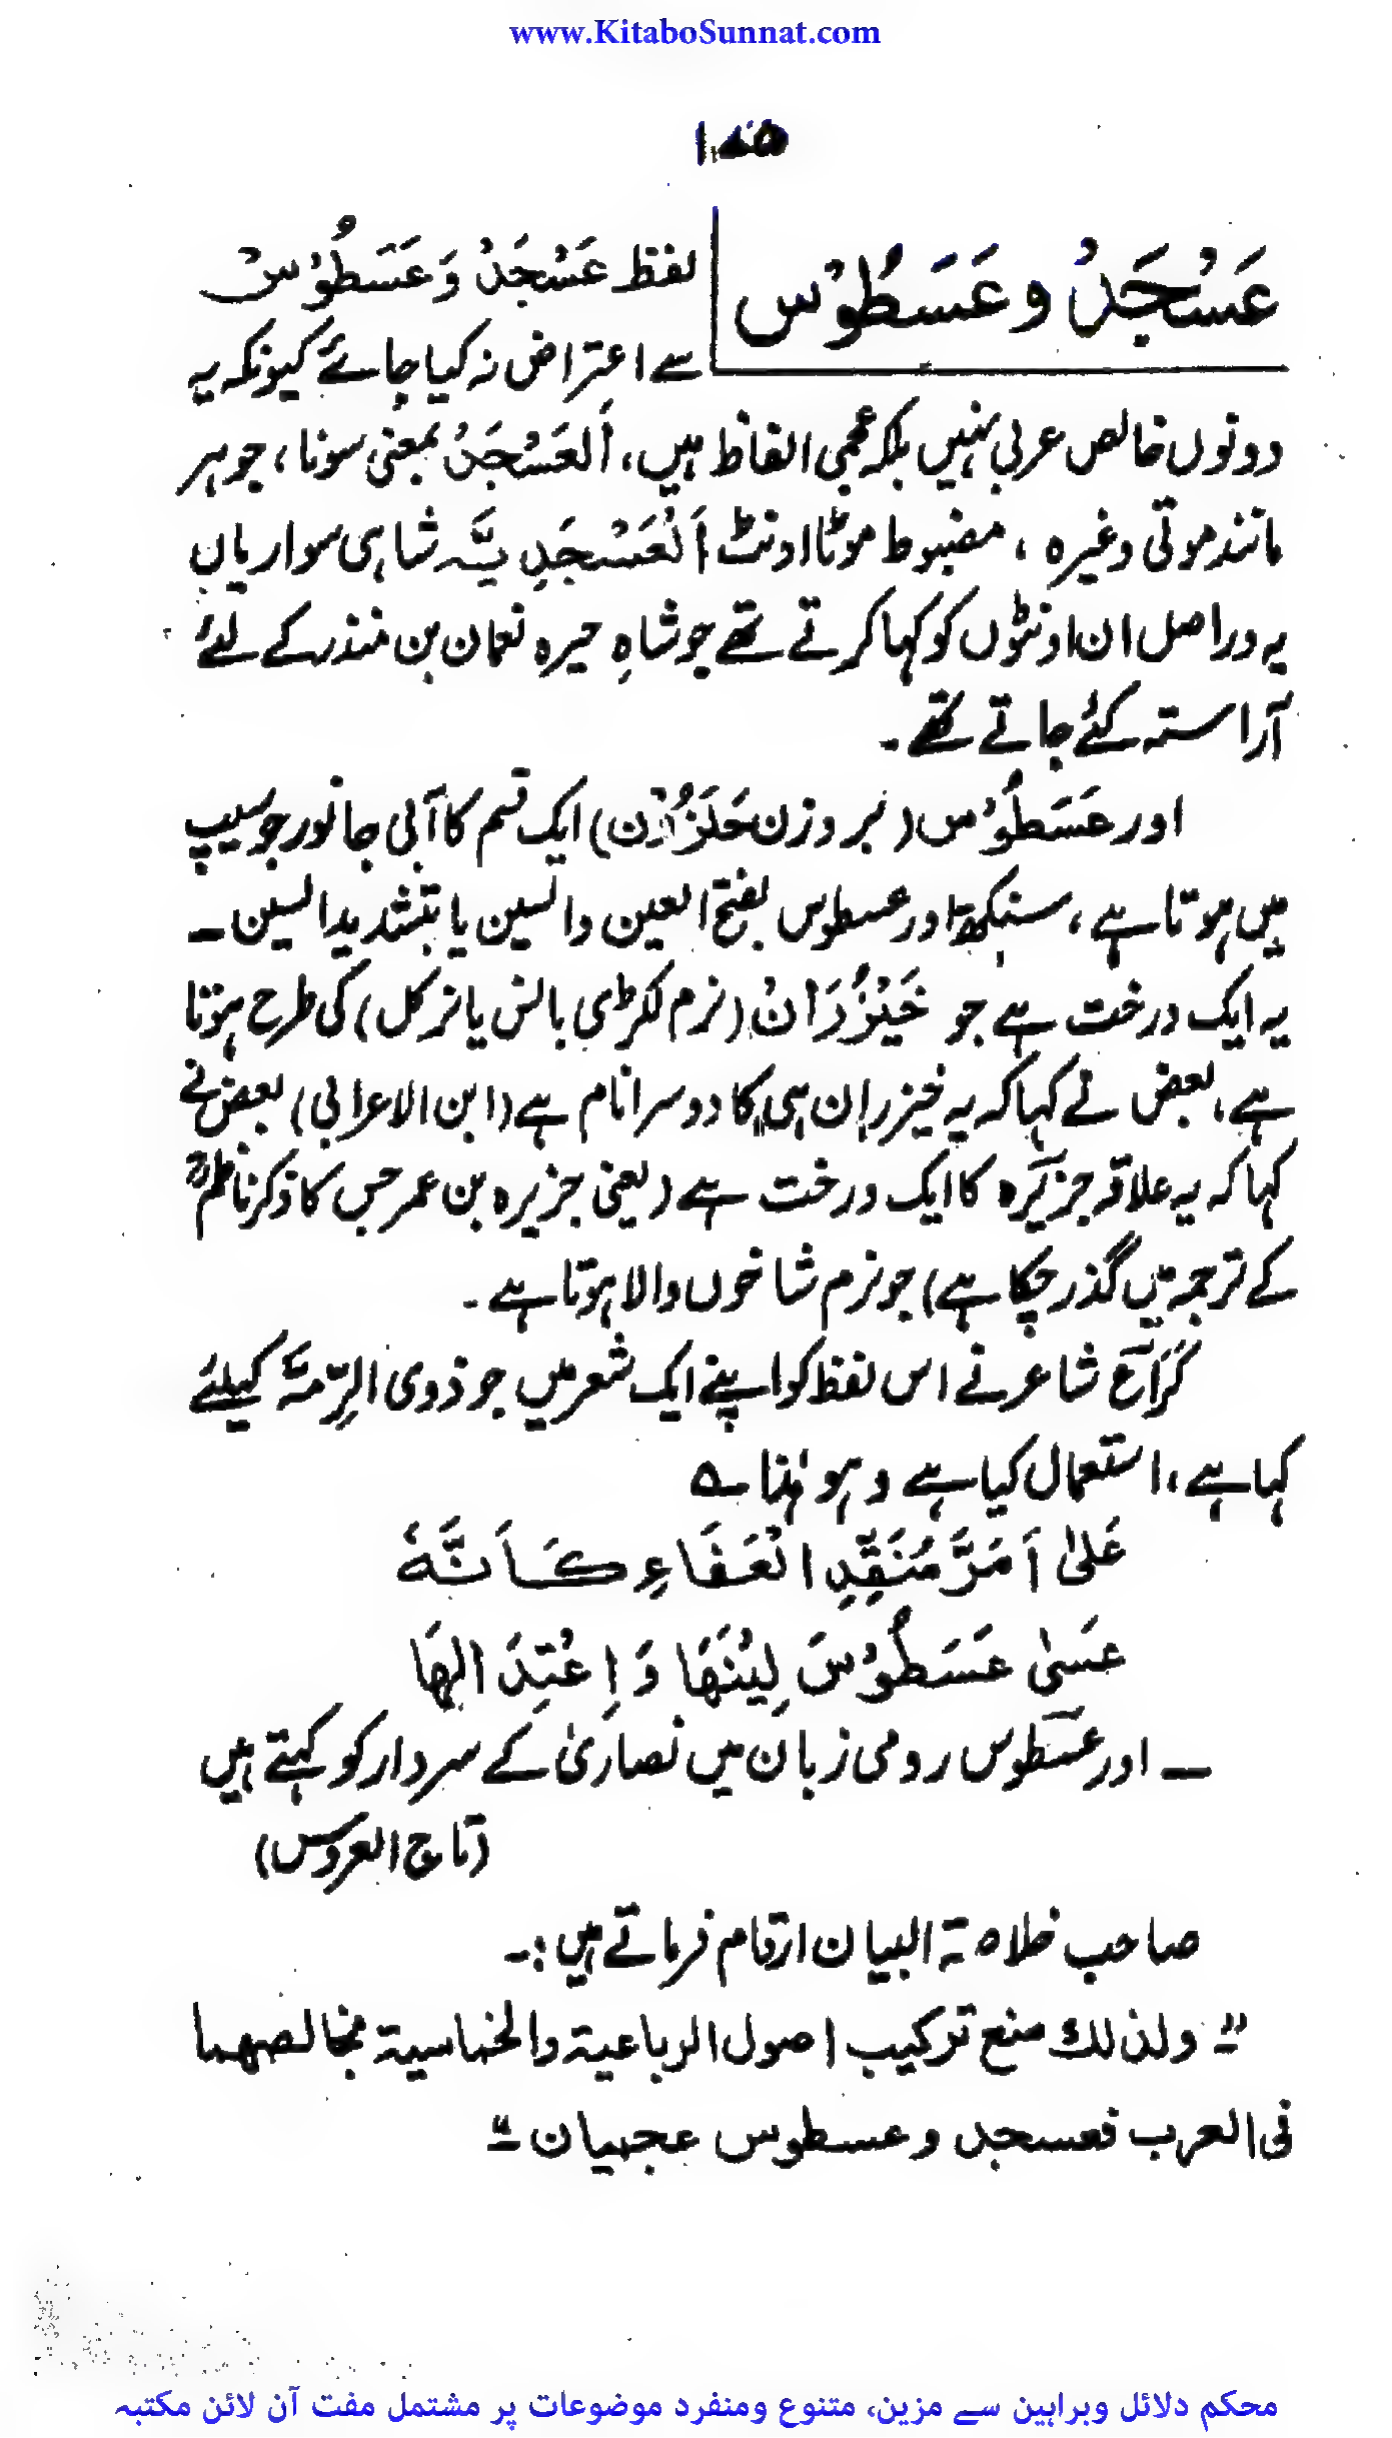 www.KitaboSunnat.com
عَسْجَدُ وعَسَطُوْس
لفظ عَسْجَدُ وَعَسَطُوْسْ
سے اعتراض نہ کیا جائے کیونکہ یہ
دونوں خالص عربی نہیں بلکہ عجمی الفاظ ہیں، اَلعَسْجَدُ بمعنی سونا، جوہر
مانند موتی وغیرہ ، مضبوط موٹا اونٹ اَلْعَسْجَدِ یَّہ شاہی سواریاں
یہ دراصل ان اونٹوں کو کہا کرتے تھے جو شاہِ حیرہ نعمان بن منذر کے لئے
آراستہ کئے جاتے تھے ۔
اور عَسَطُوْس (بروزن حَلَزُوْن) ایک قسم کا آبی جانور جو سیپ
میں ہوتا ہے ، سنکھ اور عسطوس بفتح العین والسین یا بتشدید السین ۔
یہ ایک درخت ہے جو خَیْزُرَانْ (نرم لکڑی بانس یا نرکل) کی طرح ہوتا
ہے، بعض نے کہا کہ یہ خیزران ہی کا دوسرا نام ہے (ابن الاعرابی) بعض نے
کہا کہ یہ علاقہ جزیرہ کا ایک درخت ہے (یعنی جزیرہ بن عمر جس کا ذکر ناظمؒ
کے ترجمہ میں گذر چکا ہے) جو نرم شاخوں والا ہوتا ہے ۔
کُرَاعْ شاعر نے اس لفظ کو اپنے ایک شعر میں جو ذوی الرِّمَّۃ کیلئے
کہا ہے ، استعمال کیا ہے وہو ہٰذا ۔ ہ
عَلیٰ اَمَرَّ مُنَقِّدِ الْعَفَاءِ کَاَنَّہٗ
عَسیٰ عَسَطُوْسَ لِیْنَھَا وَاِعْتِدَالِھَا
— اور عسطوس رومی زبان میں نصاریٰ کے سردار کو کہتے ہیں
(تاج العروس)
صاحب خلاصۃ البیان ارقام فرماتے ہیں :۔
" ولذلك منع تركيب اصول الرباعية والخماسية بخالصهما
فی العرب فعسجد وعسطوس عجمیان "
محکم دلائل وبراہین سے مزین، متنوع ومنفرد موضوعات پر مشتمل مفت آن لائن مکتبہ